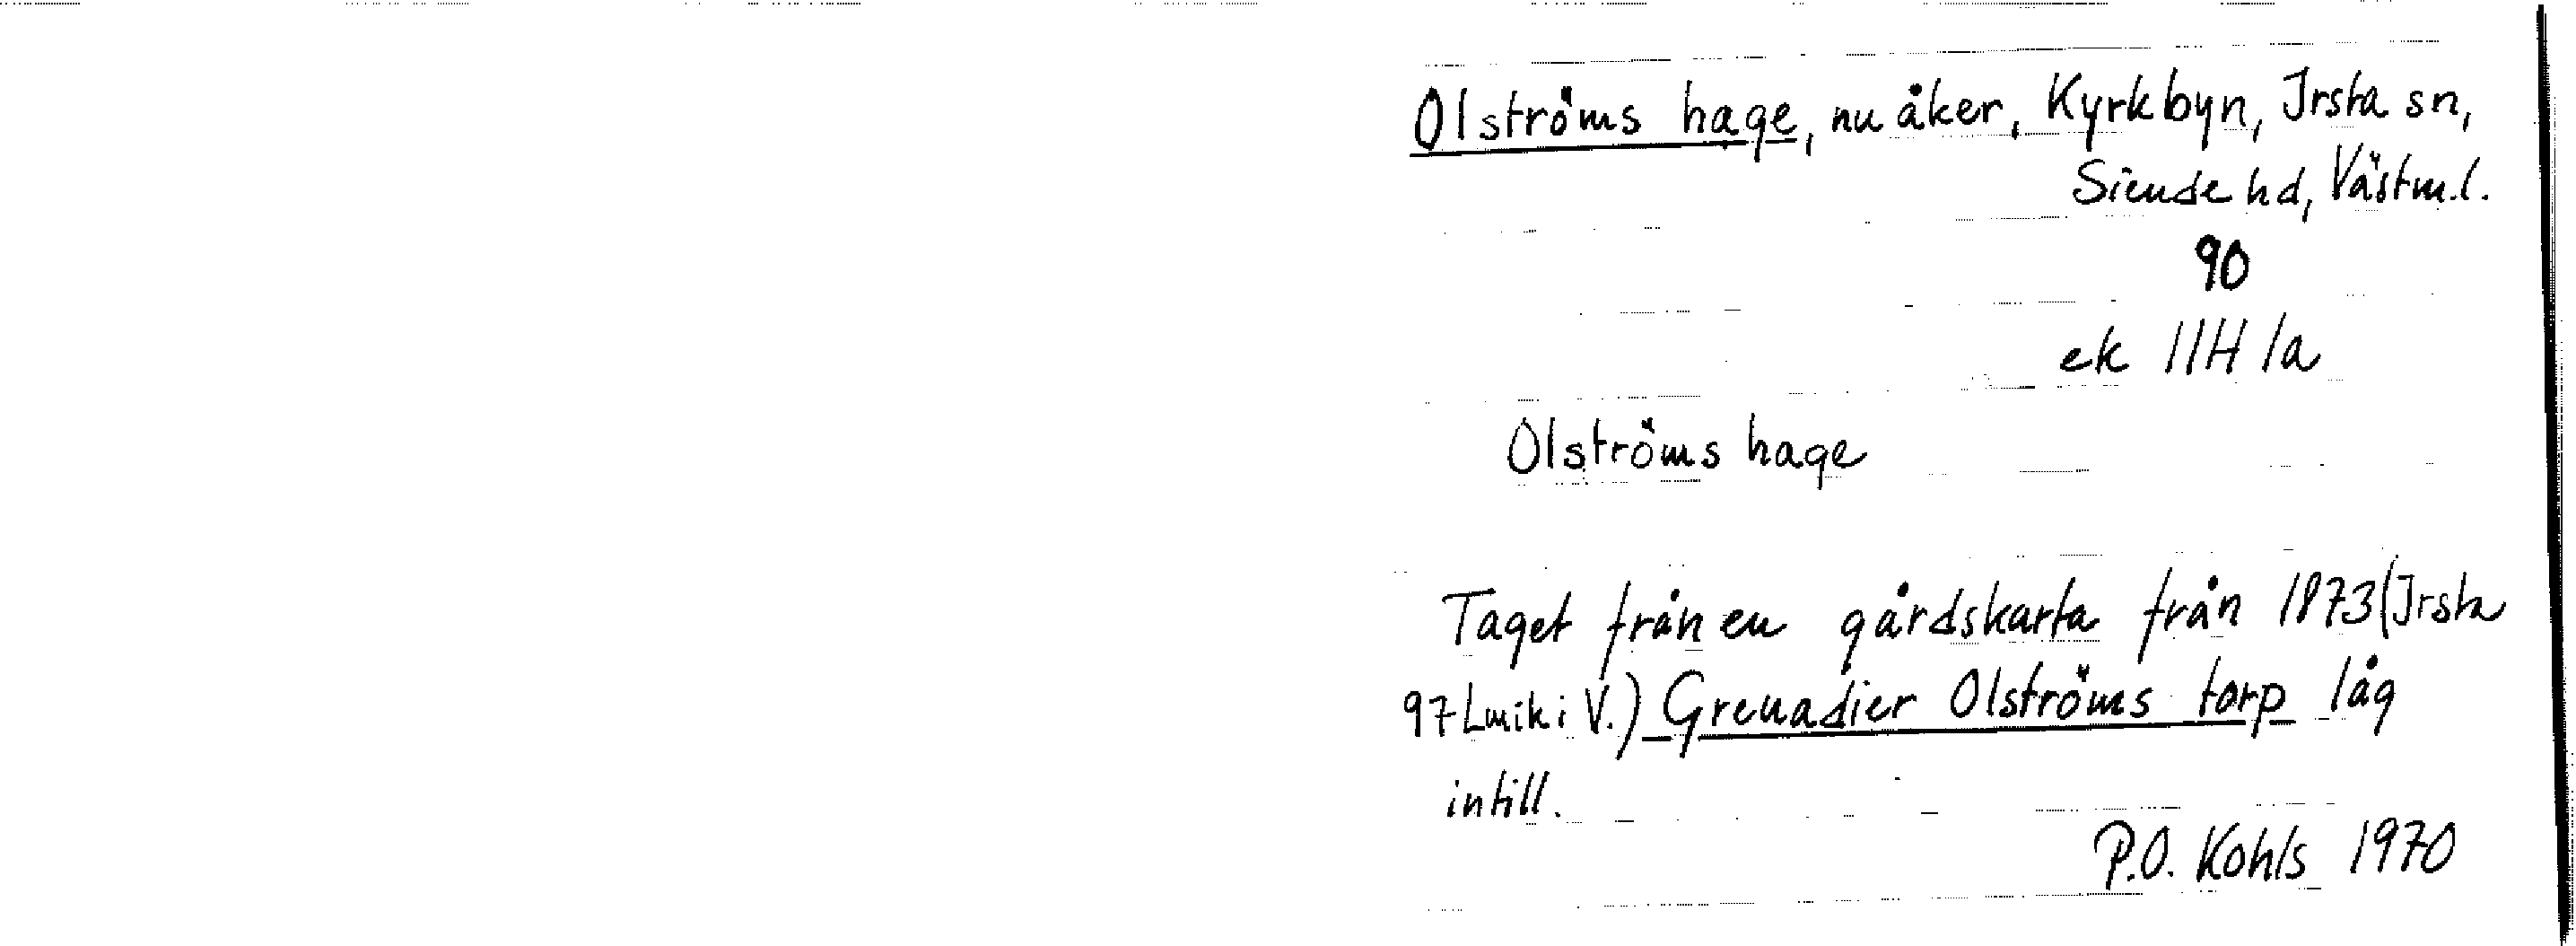 Olströms hage, nu åker, Kyrkbyn, Irsta sn,
Siende hd, Västm.l.
90
ek 11H 1a
Olströms hage
Taget från en gårdskarta från 1873 (Irsta
97 Lmik i V.) Grenadier Olströms torp låg
intill.
P.O. Kohls 1970